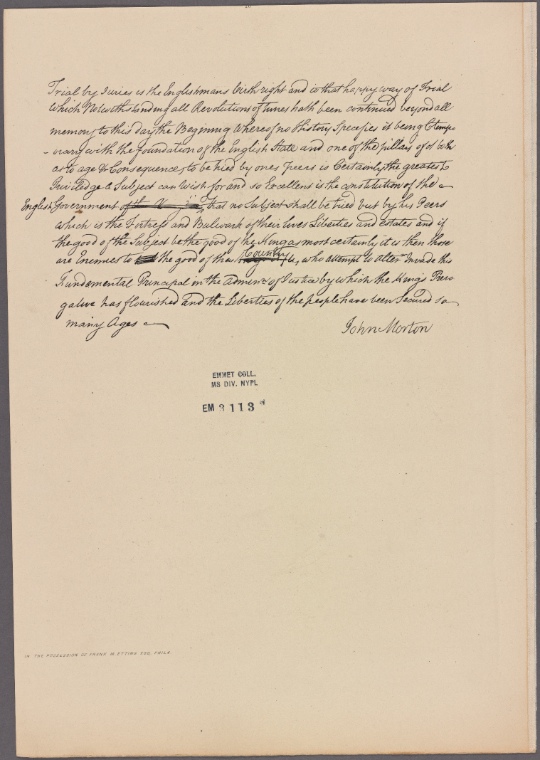 Trial by Juries is the Englishmans birth right and is that happy way of Trial
which Notwithstanding all Revolutions of times hath been continued beyond all
memory to this day the Beginning whereof no History Specifies it being Contempo
-rary with the foundation of the English State and one of the pillars of it both
as to age & Consequence, to be tried by ones Peers is Certainly the greatest
Priviledge a Subject can wish for and so Excellent is the constitution of the
English Government that no Subject shall be tried but by his Peers
which is the Fortress and Bulwark of their lives Liberties and estates and if
the good of the Subject be the good of the King as most certainly it is then those
are Enemies to the good of the Country who attempt to alter Invade this
Fundamental Principal in the Adminn. of Justice by which the King's Prero
gative has flourished and the Liberties of the people have been Secured so
many Ages
John Morton
EMMET COLL.
MS DIV. NYPL
EM 113
IN THE POSSESSION OF FRANK M. ETTING ESQ. PHILA